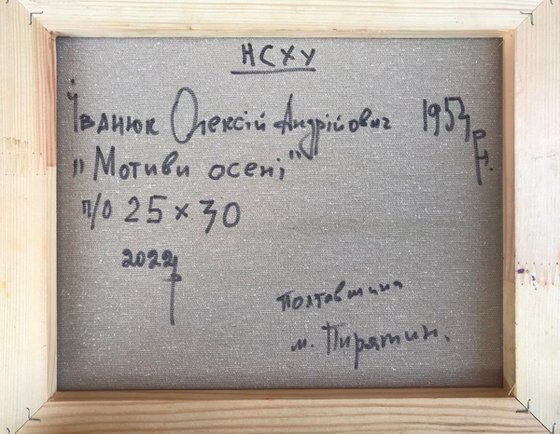 НСХУ
Іванюк Олексій Андрійович 1954 р.н.
"Мотиви осені"
п/о 25×30
2022р
Полтавщина
м. Пирятин.